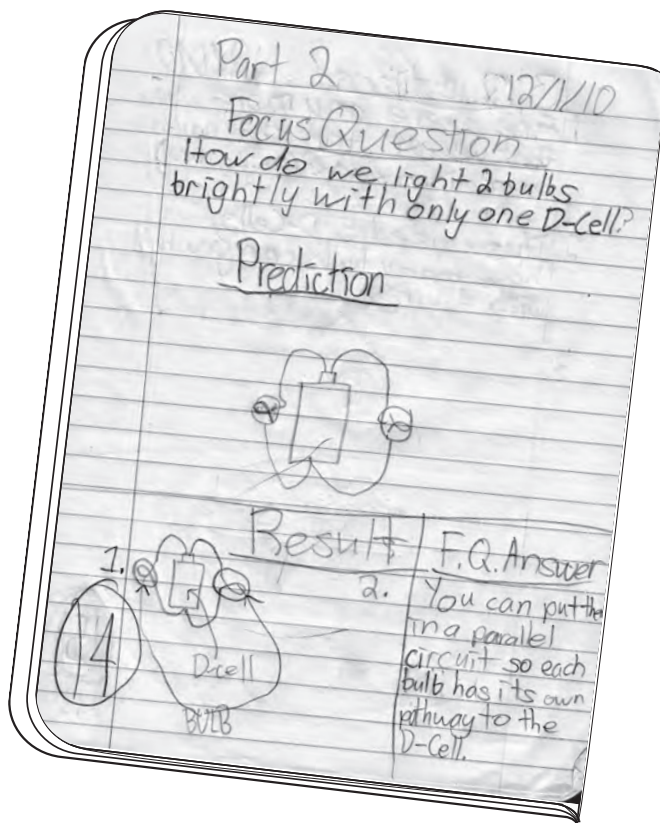 Part 2
12/1/10
Focus Question
How do we light 2 bulbs
brightly with only one D-Cell?
Prediction
Result
1.
D-cell
BULB
14
F.Q. Answer
2.
You can put the
in a parallel
circuit so each
bulb has its own
pthway to the
D-Cell.